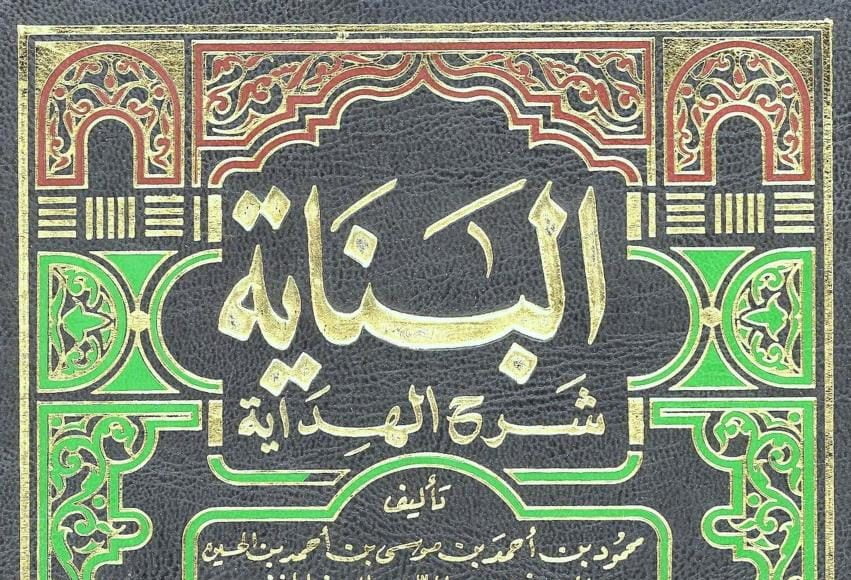 البَنَاية
شَرح الهِدَاية
تَأليف
محمُود بن أحمَد بن موسى بن أحمد بن الحسين